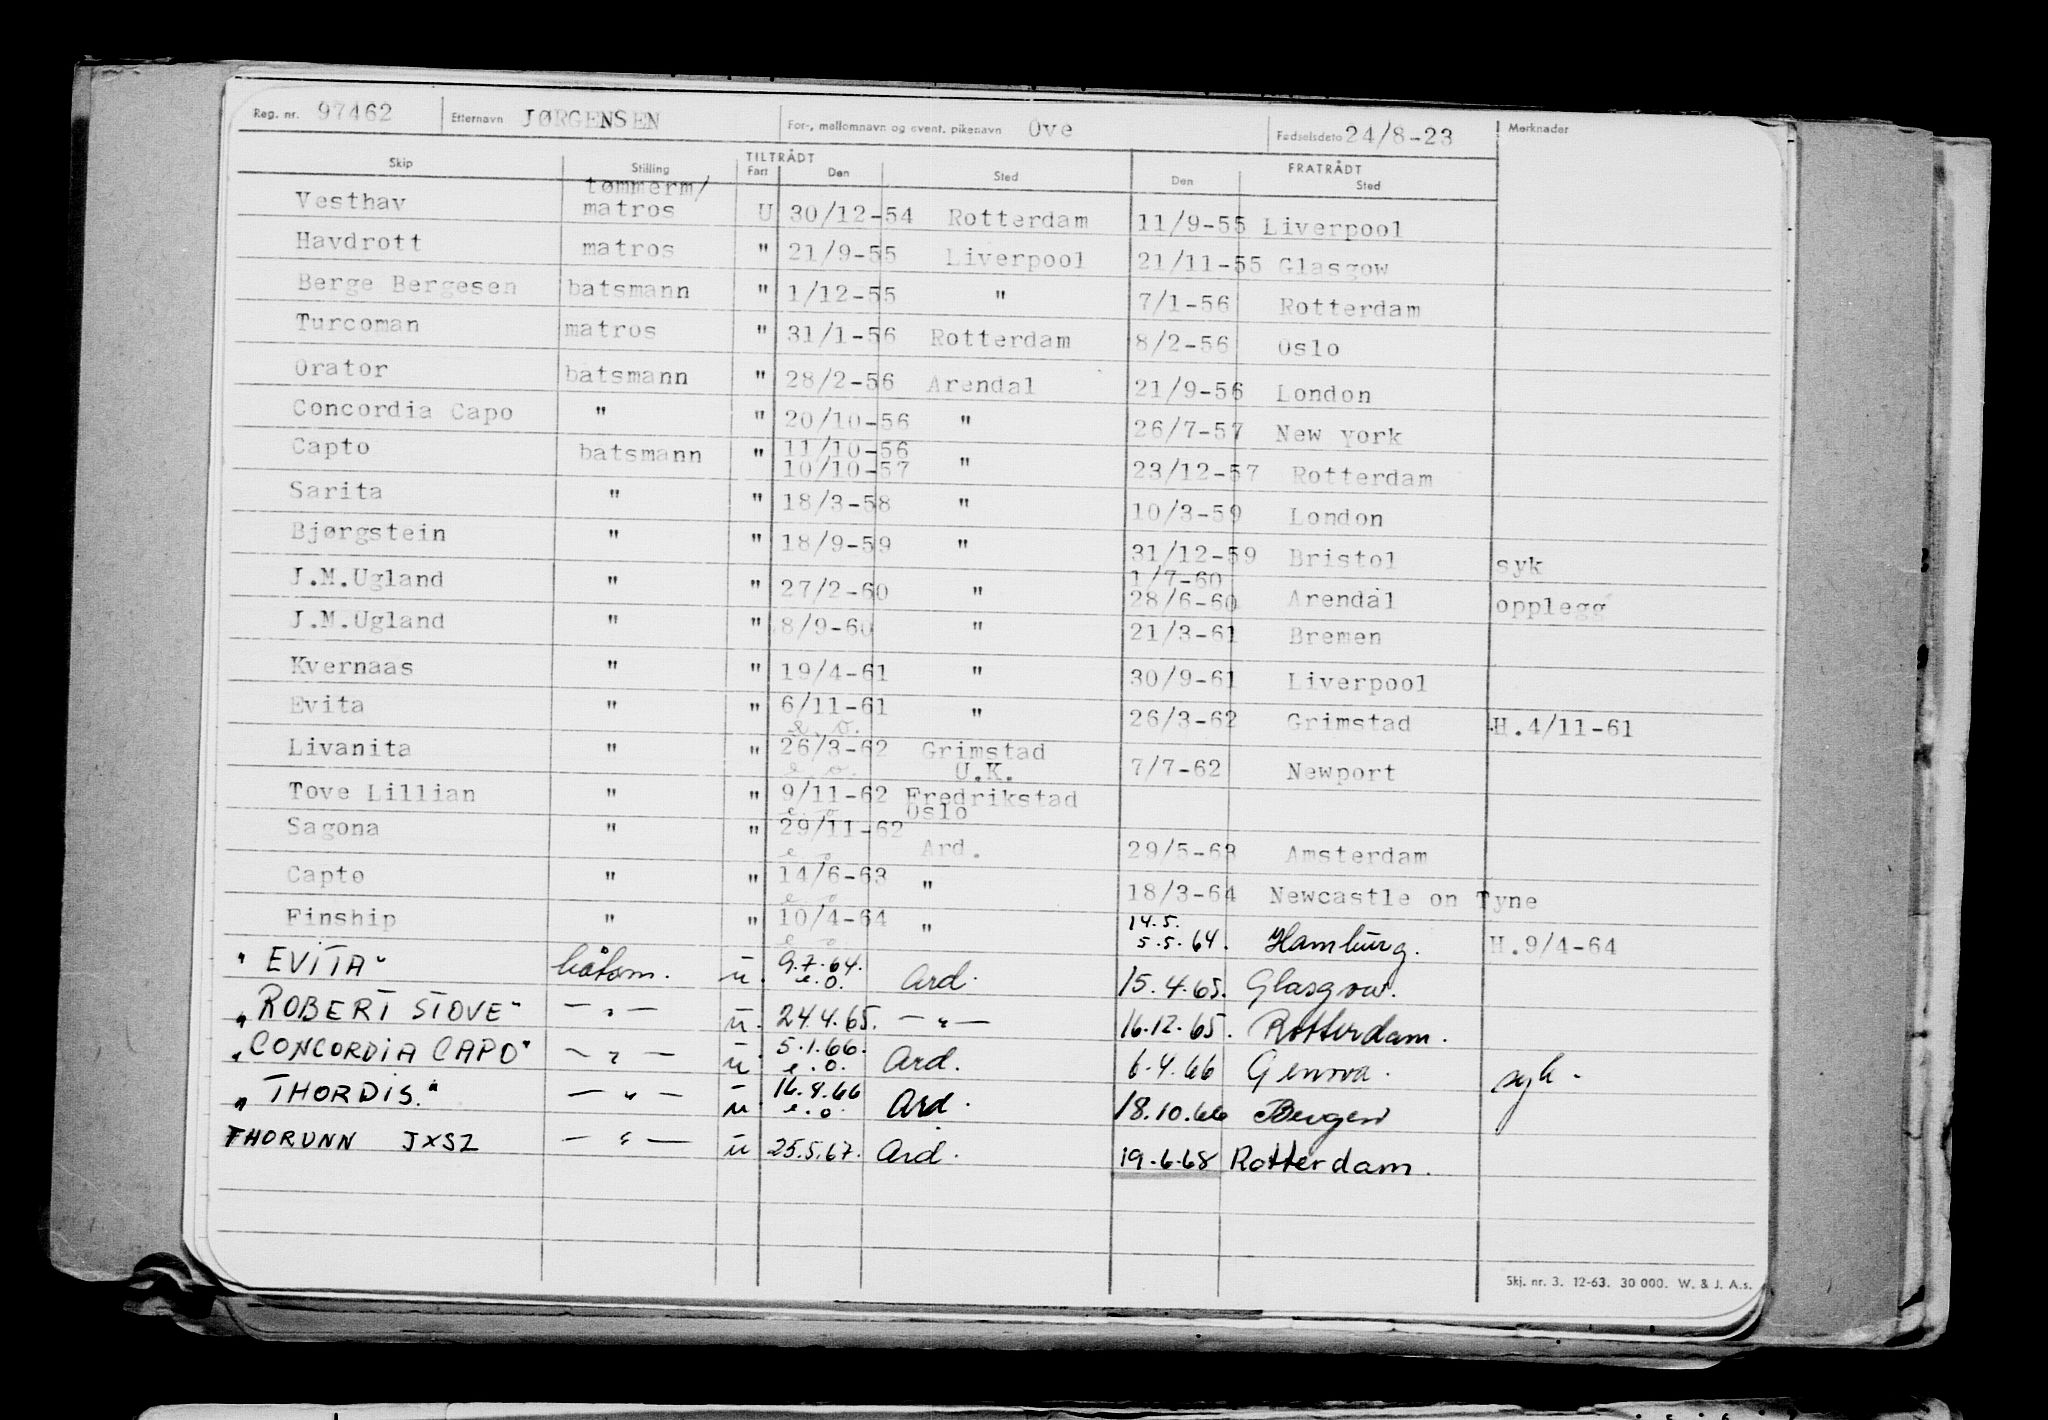 Reg. nr. 97462 Etternavn JØRGENSEN For-, mellomnavn og event. pikenavn Ove Fødselsdato 24/8-23 Merknader
TILTRÅDT FRATRÅDT
Skip Stilling Fart Den Sted Den Sted
tømmerm/
Vesthav matros U 30/12-54 Rotterdam 11/9-55 Liverpool
Havdrott matros " 21/9-55 Liverpool 21/11-55 Glasgow
Berge Bergesen batsmann " 1/12-55 " 7/1-56 Rotterdam
Turcoman matros " 31/1-56 Rotterdam 8/2-56 Oslo
Orator batsmann " 28/2-56 Arendal 21/9-56 London
Concordia Capo " " 20/10-56 " 26/7-57 New york
11/10-56
Capto batsmann " 10/10-57 " 23/12-57 Rotterdam
Sarita " " 18/3-58 " 10/3-59 London
Bjørgstein " " 18/9-59 " 31/12-59 Bristol syk
1/7-60
J.M.Ugland " " 27/2-60 " 28/6-60 Arendal opplegg
J.M.Ugland " " 8/9-60 " 21/3-61 Bremen
Kvernaas " " 19/4-61 " 30/9-61 Liverpool
Evita " " 6/11-61 " 26/3-62 Grimstad H.4/11-61
e.o.
Livanita " " 26/3-62 Grimstad 7/7-62 Newport
e.o. U.K.
Tove Lillian " " 9/11-62 Fredrikstad
e o Oslo
Sagona " " 29/11-62
e o Ard. 29/5-63 Amsterdam
Capto " " 14/6-63 " 18/3-64 Newcastle on Tyne
e o
Finship " " 10/4-64 " 14.5.
e o 5.5.64. Hamburg. H.9/4-64
"EVITA" båtsm. u. 9.7.64. Ard. 15.4.65. Glasgow.
e.o.
"ROBERT STOVE" — " — u. 24.4.65. — " — 16.12.65. Rotterdam.
"CONCORDIA CAPO" — " — u. 5.1.66. Ard. 6.4.66 Genova. syk.
e.o.
"THORDIS." — " — u. 16.4.66 Ard. 18.10.66 Bergen
e.o.
THORUNN JXSZ — " — u 25.5.67. Ard. 19.6.68 Rotterdam.
Skj. nr. 3. 12-63. 30 000. W. & J. A.s.